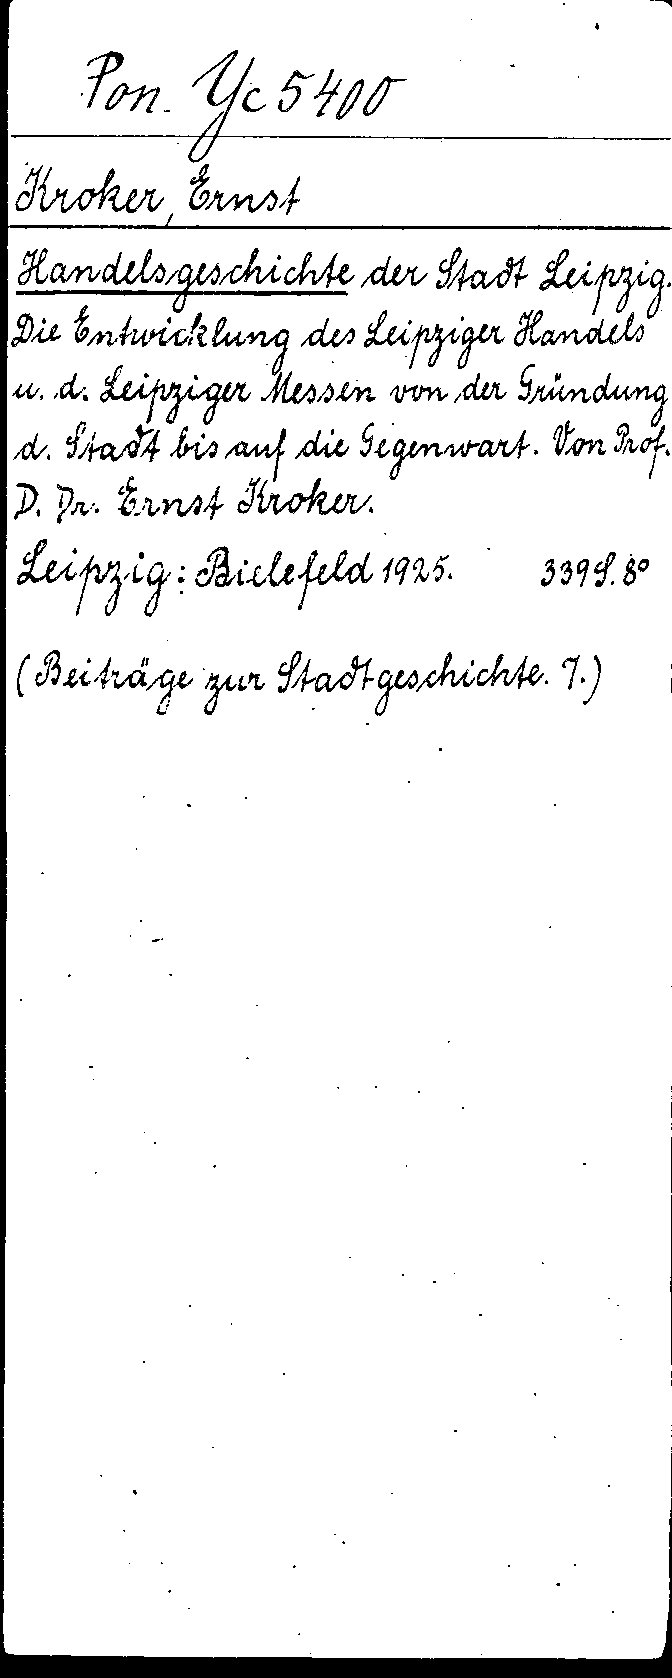 Pon. Yc 5400
Kroker, Ernst
Handelsgeschichte der Stadt Leipzig.
Die Entwicklung des Leipziger Handels
u. d. Leipziger Messen von der Gründung
d. Stadt bis auf die Gegenwart. Von Prof.
D. Dr. Ernst Kroker.
Leipzig: Bielefeld 1925. 339 S. 8°
(Beiträge zur Stadtgeschichte. 7.)